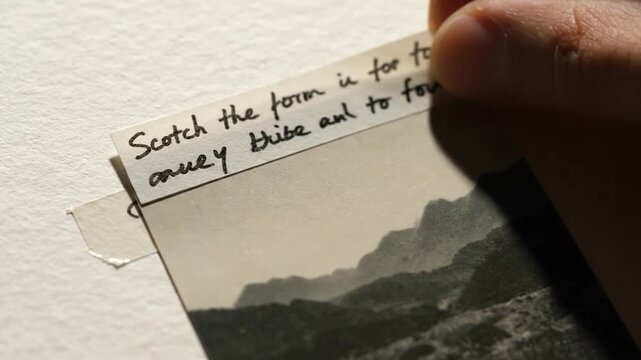 Scotch the form is for to
ouuey tribe and to fou